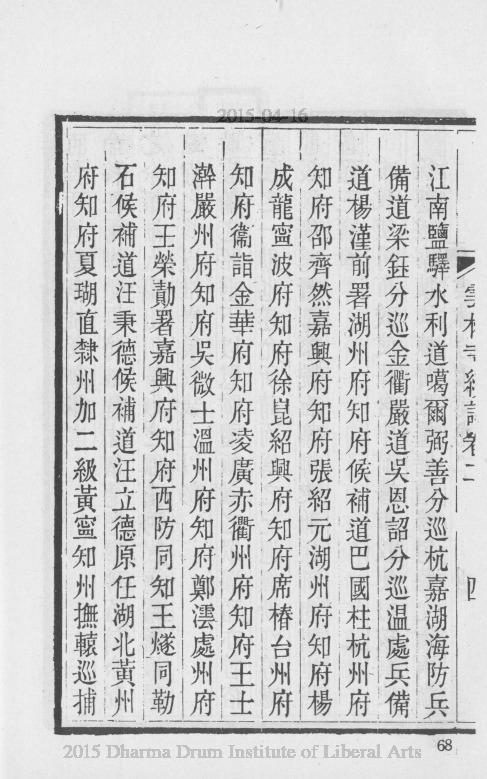 2015-04-16
江南鹽驛水利道噶爾弼善分巡杭嘉湖海防兵
備道梁鈺分巡金衢嚴道吳恩詔分巡温處兵備
道楊漌前署湖州府知府候補道巴國柱杭州府
知府邵齊然嘉興府知府張紹元湖州府知府楊
成龍寧波府知府徐崑紹興府知府席椿台州府
知府衞詣金華府知府凌廣赤衢州府知府王士
澣嚴州府知府吳微士溫州府知府鄭澐處州府
知府王榮勣署嘉興府知府西防同知王燧同勒
石候補道汪秉德候補道汪立德原任湖北黃州
府知府夏瑚直隸州加二級黃寧知州撫轅巡捕
卷二
四
68
2015 Dharma Drum Institute of Liberal Arts